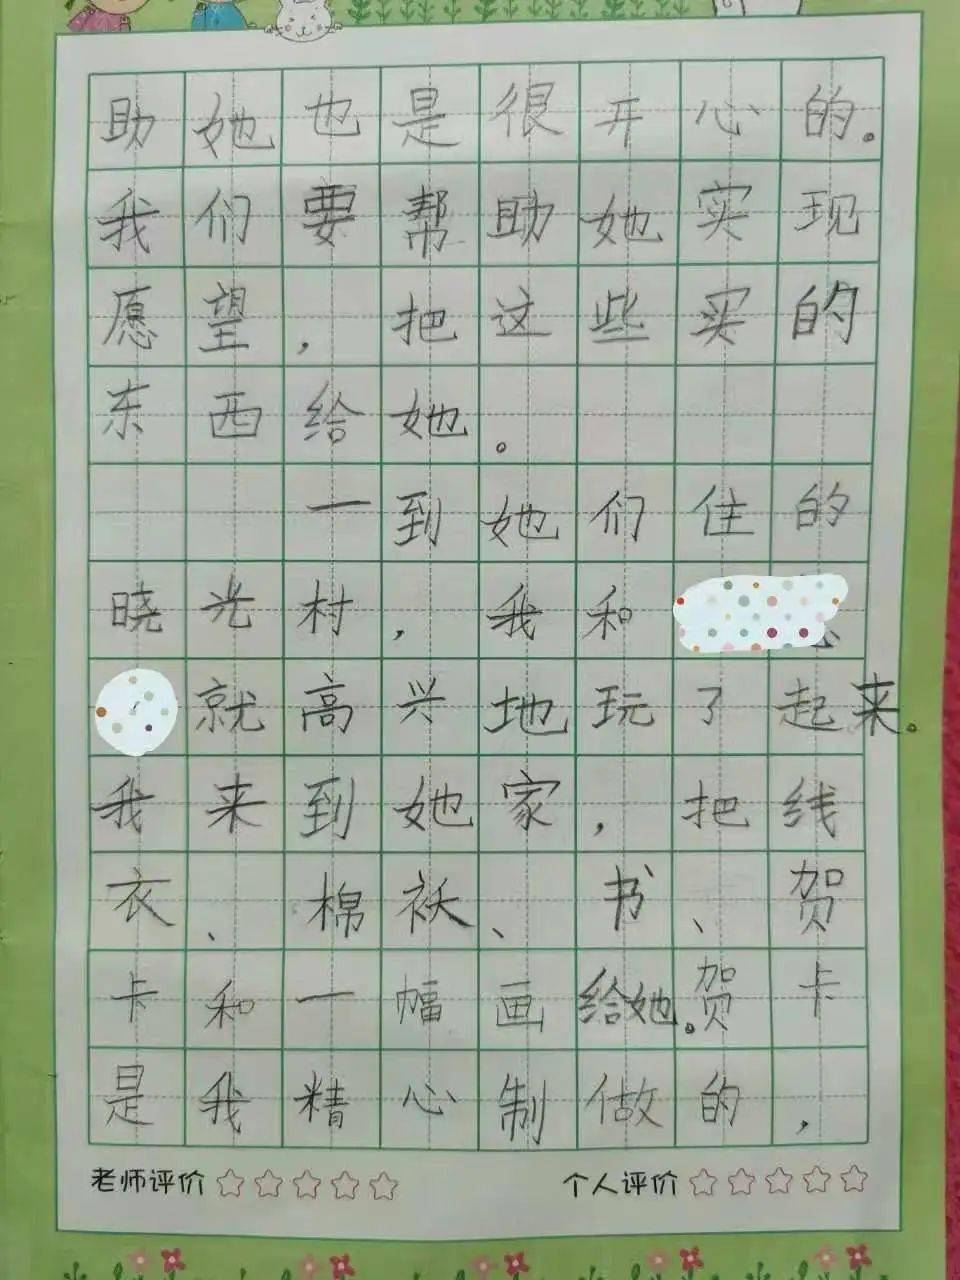 助她也是很开心的。
我们要帮助她实现
愿望，把这些买的
东西给她。
一到她们住的
晓光村，我和
就高兴地玩了起来。
我来到她家，把线
衣、棉袄、书、贺
卡和一幅画给她。贺卡
是我精心制做的，
老师评价 个人评价